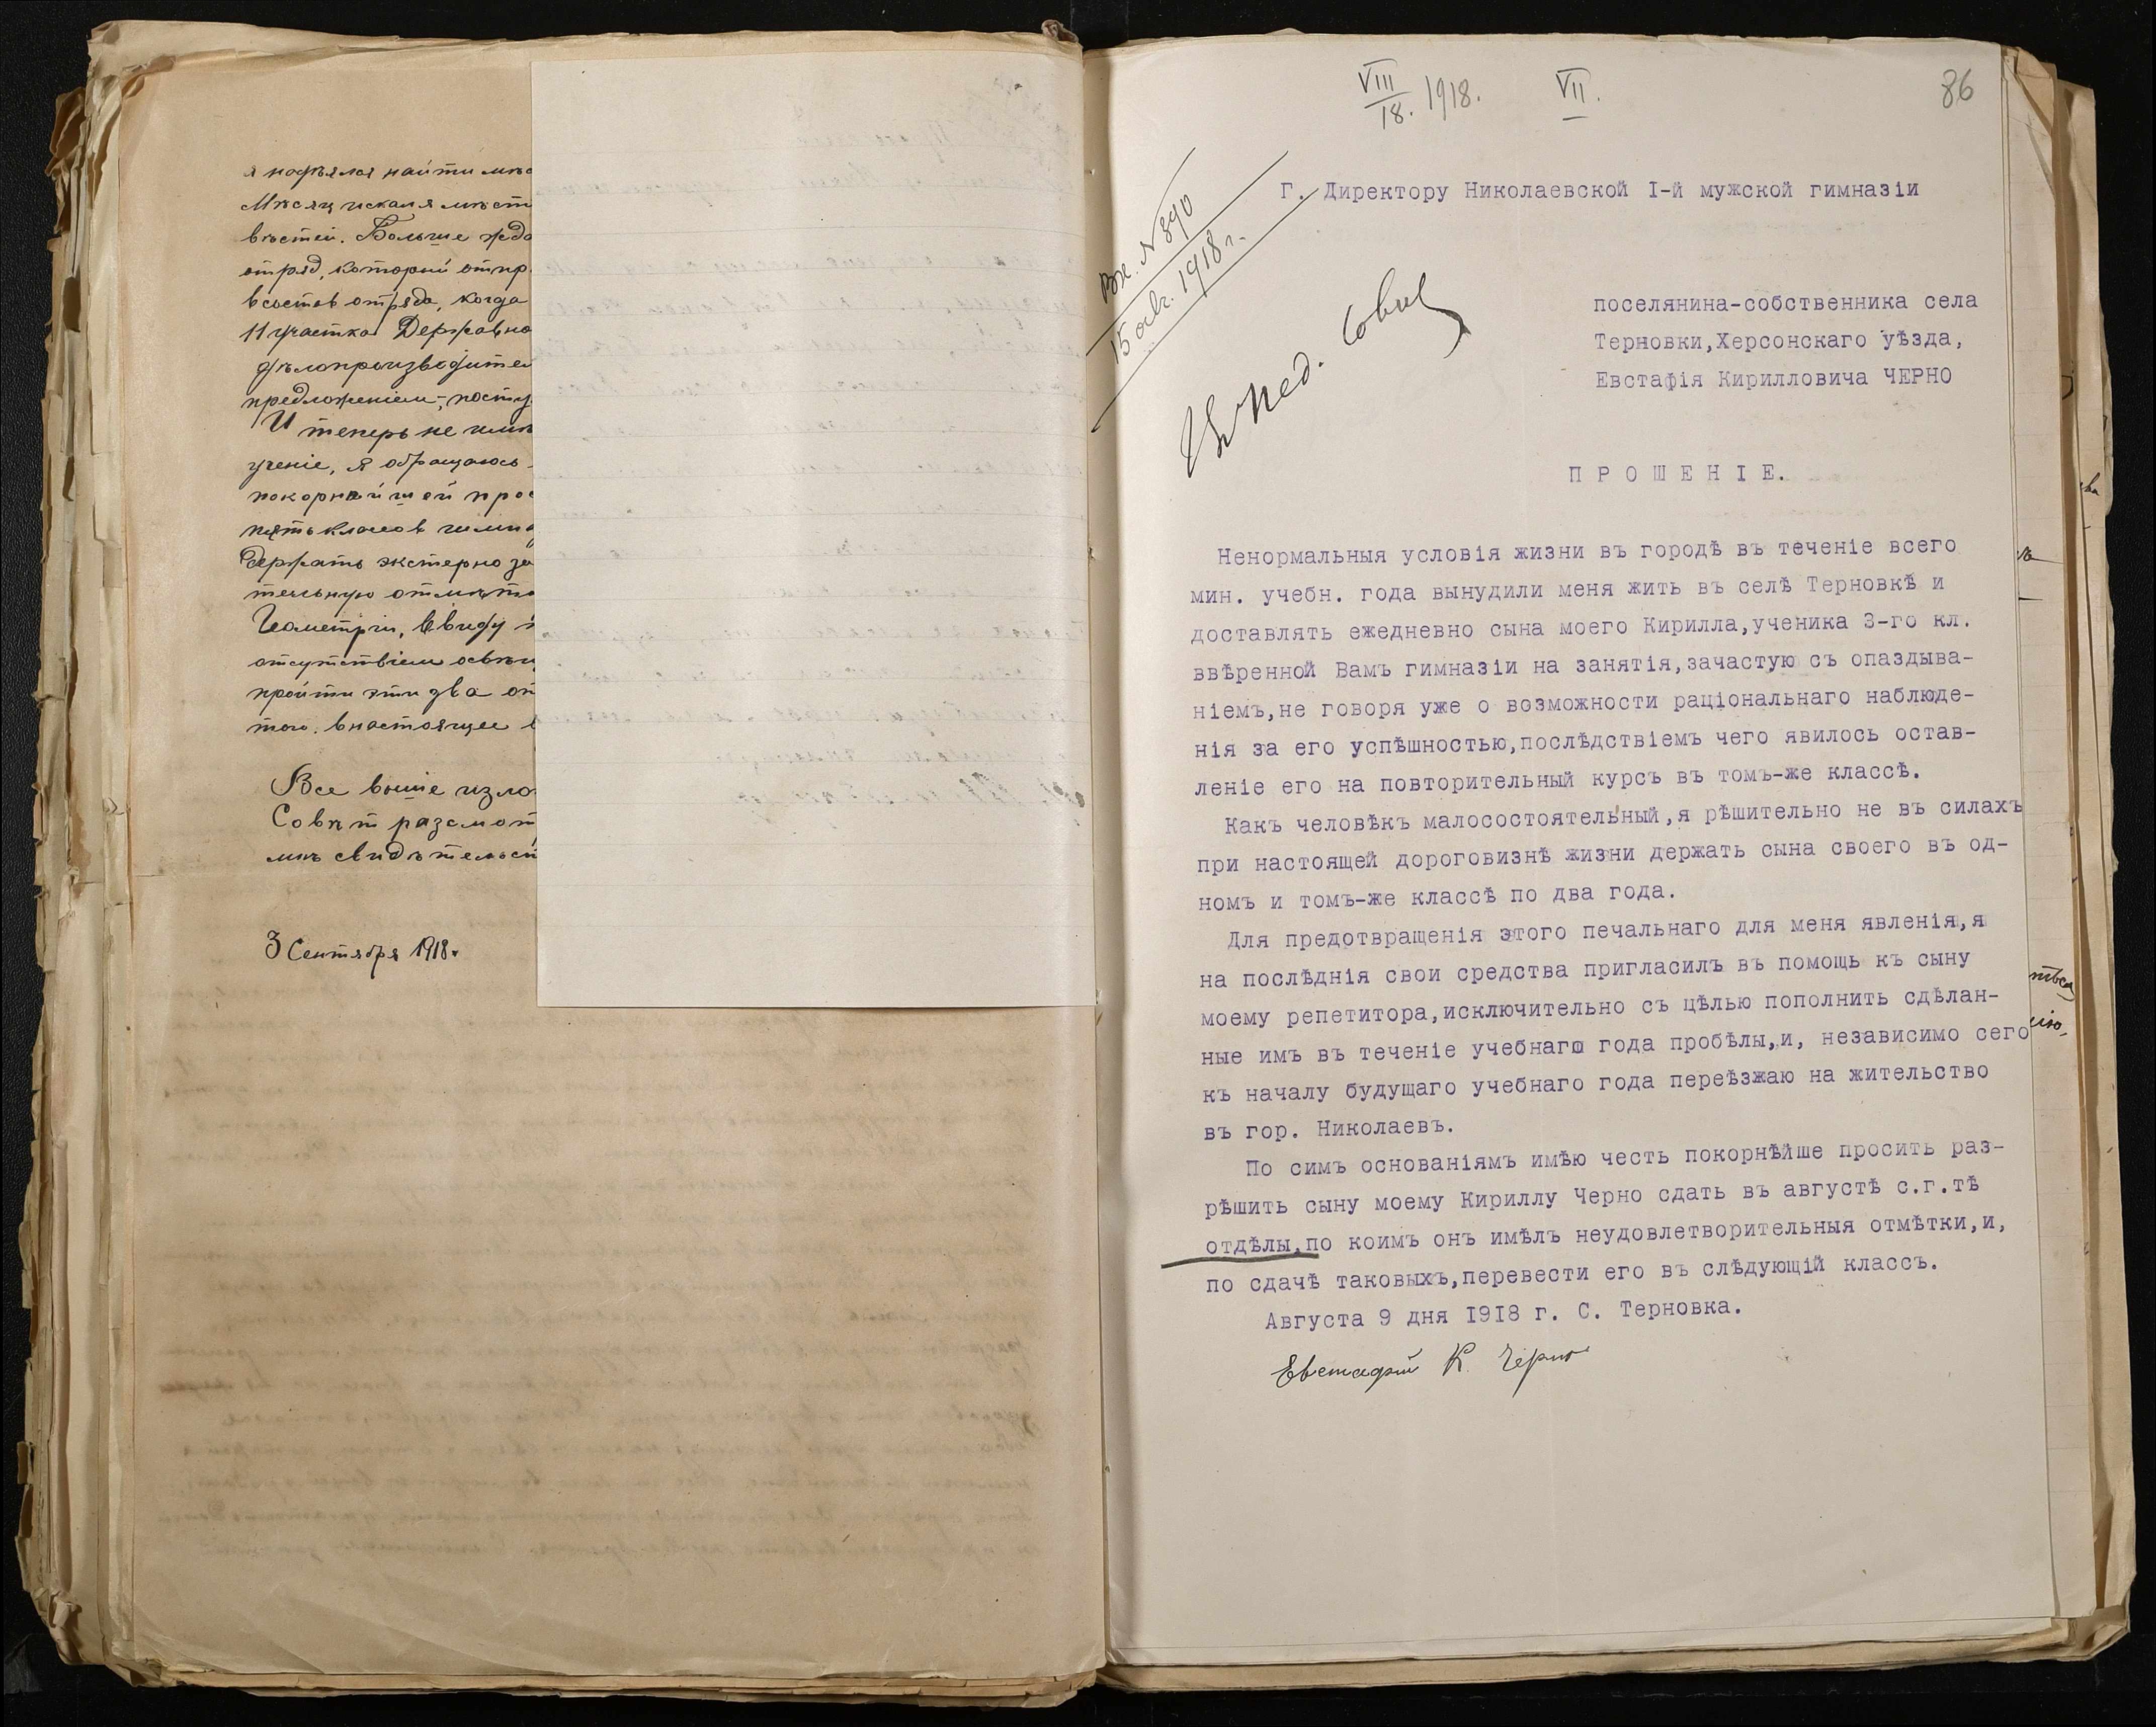 я надѣялся найти мѣс
Мѣсяц искал я мѣст
вѣстей. Больше жда
отряд, который отпр
в состав отряда, когда
11 участка Державно
дѣлопроизводител
предложеніем, посту
И теперь не имѣ
ученіе, я обращаюсь
покорнѣйшей прос
пять классов гимна
держать экстерно за
тельную отмѣтк
Геометріи, в виду
отсутствіем освѣщ
пройти эти два от
того. в настоящее в
Все выше изло
Совѣт разсмот
мнѣ свидѣтельст
3 Сентября 1918.
VIII/18. 1918. VII.
86
Вх. № 890
15 авг. 1918 г.
Въ пед. Совѣ
Г. Директору Николаевской I-й мужской гимназіи
поселянина-собственника села
Терновки,Херсонскаго уѣзда,
Евстафія Кирилловича ЧЕРНО
ПРОШЕНІЕ.
Ненормальныя условія жизни въ городѣ въ теченіе всего
мин. учебн. года вынудили меня жить въ селѣ Терновкѣ и
доставлять ежедневно сына моего Кирилла,ученика 3-го кл.
ввѣренной Вамъ гимназіи на занятія,зачастую съ опаздыва-
ніемъ,не говоря уже о возможности раціональнаго наблюде-
нія за его успѣшностью,послѣдствіемъ чего явилось остав-
леніе его на повторительный курсъ въ томъ-же классѣ.
Какъ человѣкъ малосостоятельный,я рѣшительно не въ силахъ
при настоящей дороговизнѣ жизни держать сына своего въ од-
номъ и томъ-же классѣ по два года.
Для предотвращенія этого печальнаго для меня явленія,я
на послѣднія свои средства пригласилъ въ помощь къ сыну
моему репетитора,исключительно съ цѣлью пополнить сдѣлан-
ные имъ въ теченіе учебнаго года пробѣлы,и, независимо сего
къ началу будущаго учебнаго года переѣзжаю на жительство
въ гор. Николаевъ.
По симъ основаніямъ имѣю честь покорнѣйше просить раз-
рѣшить сыну моему Кириллу Черно сдать въ августѣ с.г.тѣ
отдѣлы,по коимъ онъ имѣлъ неудовлетворительныя отмѣтки,и,
по сдачѣ таковыхъ,перевести его въ слѣдующій классъ.
Августа 9 дня 1918 г. С. Терновка.
Евстафій К. Черно